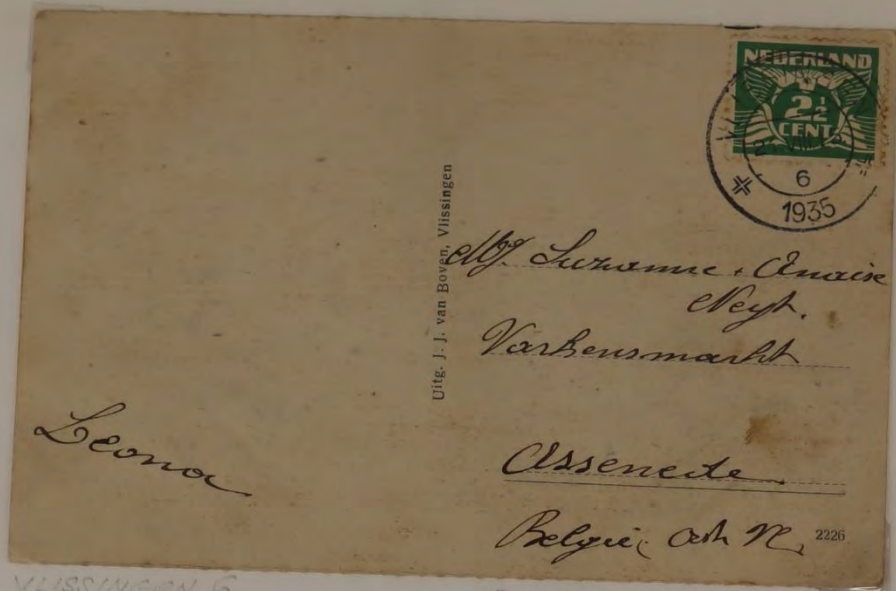 NEDERLAND
2½
CENT
6
1935
Uitg. J. J. van Boven, Vlissingen
Mej. Suzanne + Anaïse
Neyt.
Varkensmarkt
Assenede
België
2226
Leona
VLISSINGEN 6